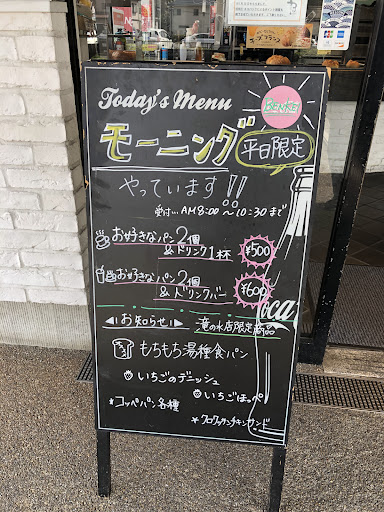 Today's Menu
BENKE
モーニング
平日限定
やっています!!
受付…AM8:00〜10:30まで
お好きなパン2個
&ドリンク1杯
¥500
お好きなパン2個
&ドリンクバー
¥600
お知らせ!
竜の水店限定商品
もちもち湯種食パン
いちごのデニッシュ
いちごほっぺ
*コッペパン各種
*クロワッサンチキンサンド
oca
JCB